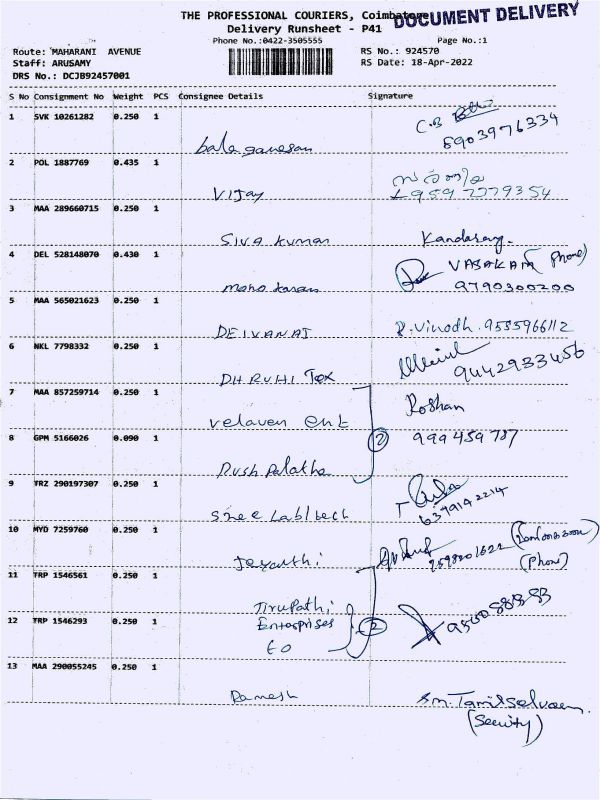 THE PROFESSIONAL COURIERS, Coimbatore
DOCUMENT DELIVERY
Delivery Runsheet - P41
Phone No.:0422-3505555
Page No.:1
Route: MAHARANI AVENUE
RS No.: 924570
Staff: ARUSAMY
RS Date: 18-Apr-2022
DRS No.: DCJB92457001
S No Consignment No Weight PCS Consignee Details Signature
1 SVK 10261282 0.250 1
C.B
6903976334
bala ganesan
2 POL 1887769 0.435 1
9597779354
Vijay
3 MAA 289660715 0.250 1
Siva kumar
Kandasamy.
4 DEL 528148070 0.430 1
VASAKAM (Phone)
9790300200
mano karan
5 MAA 565021623 0.250 1
DEIVANAI
R. Vinodh. 9585966112
6 NKL 7798332 0.250 1
9442933456
DHRUHI Tex
7 MAA 857259714 0.250 1
Roshan
velaven ent
8 GPM 5166026 0.090 1
2
999459787
Push Palatha
9 TRZ 290197307 0.250 1
6379142214
Sree Labltech
10 MYD 7259760 0.250 1
9598201622
(Phone)
Jayanthi
11 TRP 1546561 0.250 1
Tirupathi
Enterprises
12 TRP 1546293 0.250 1
2
EO
13 MAA 290055245 0.250 1
Ramesh
Sm. Tamilselvam
(Security)